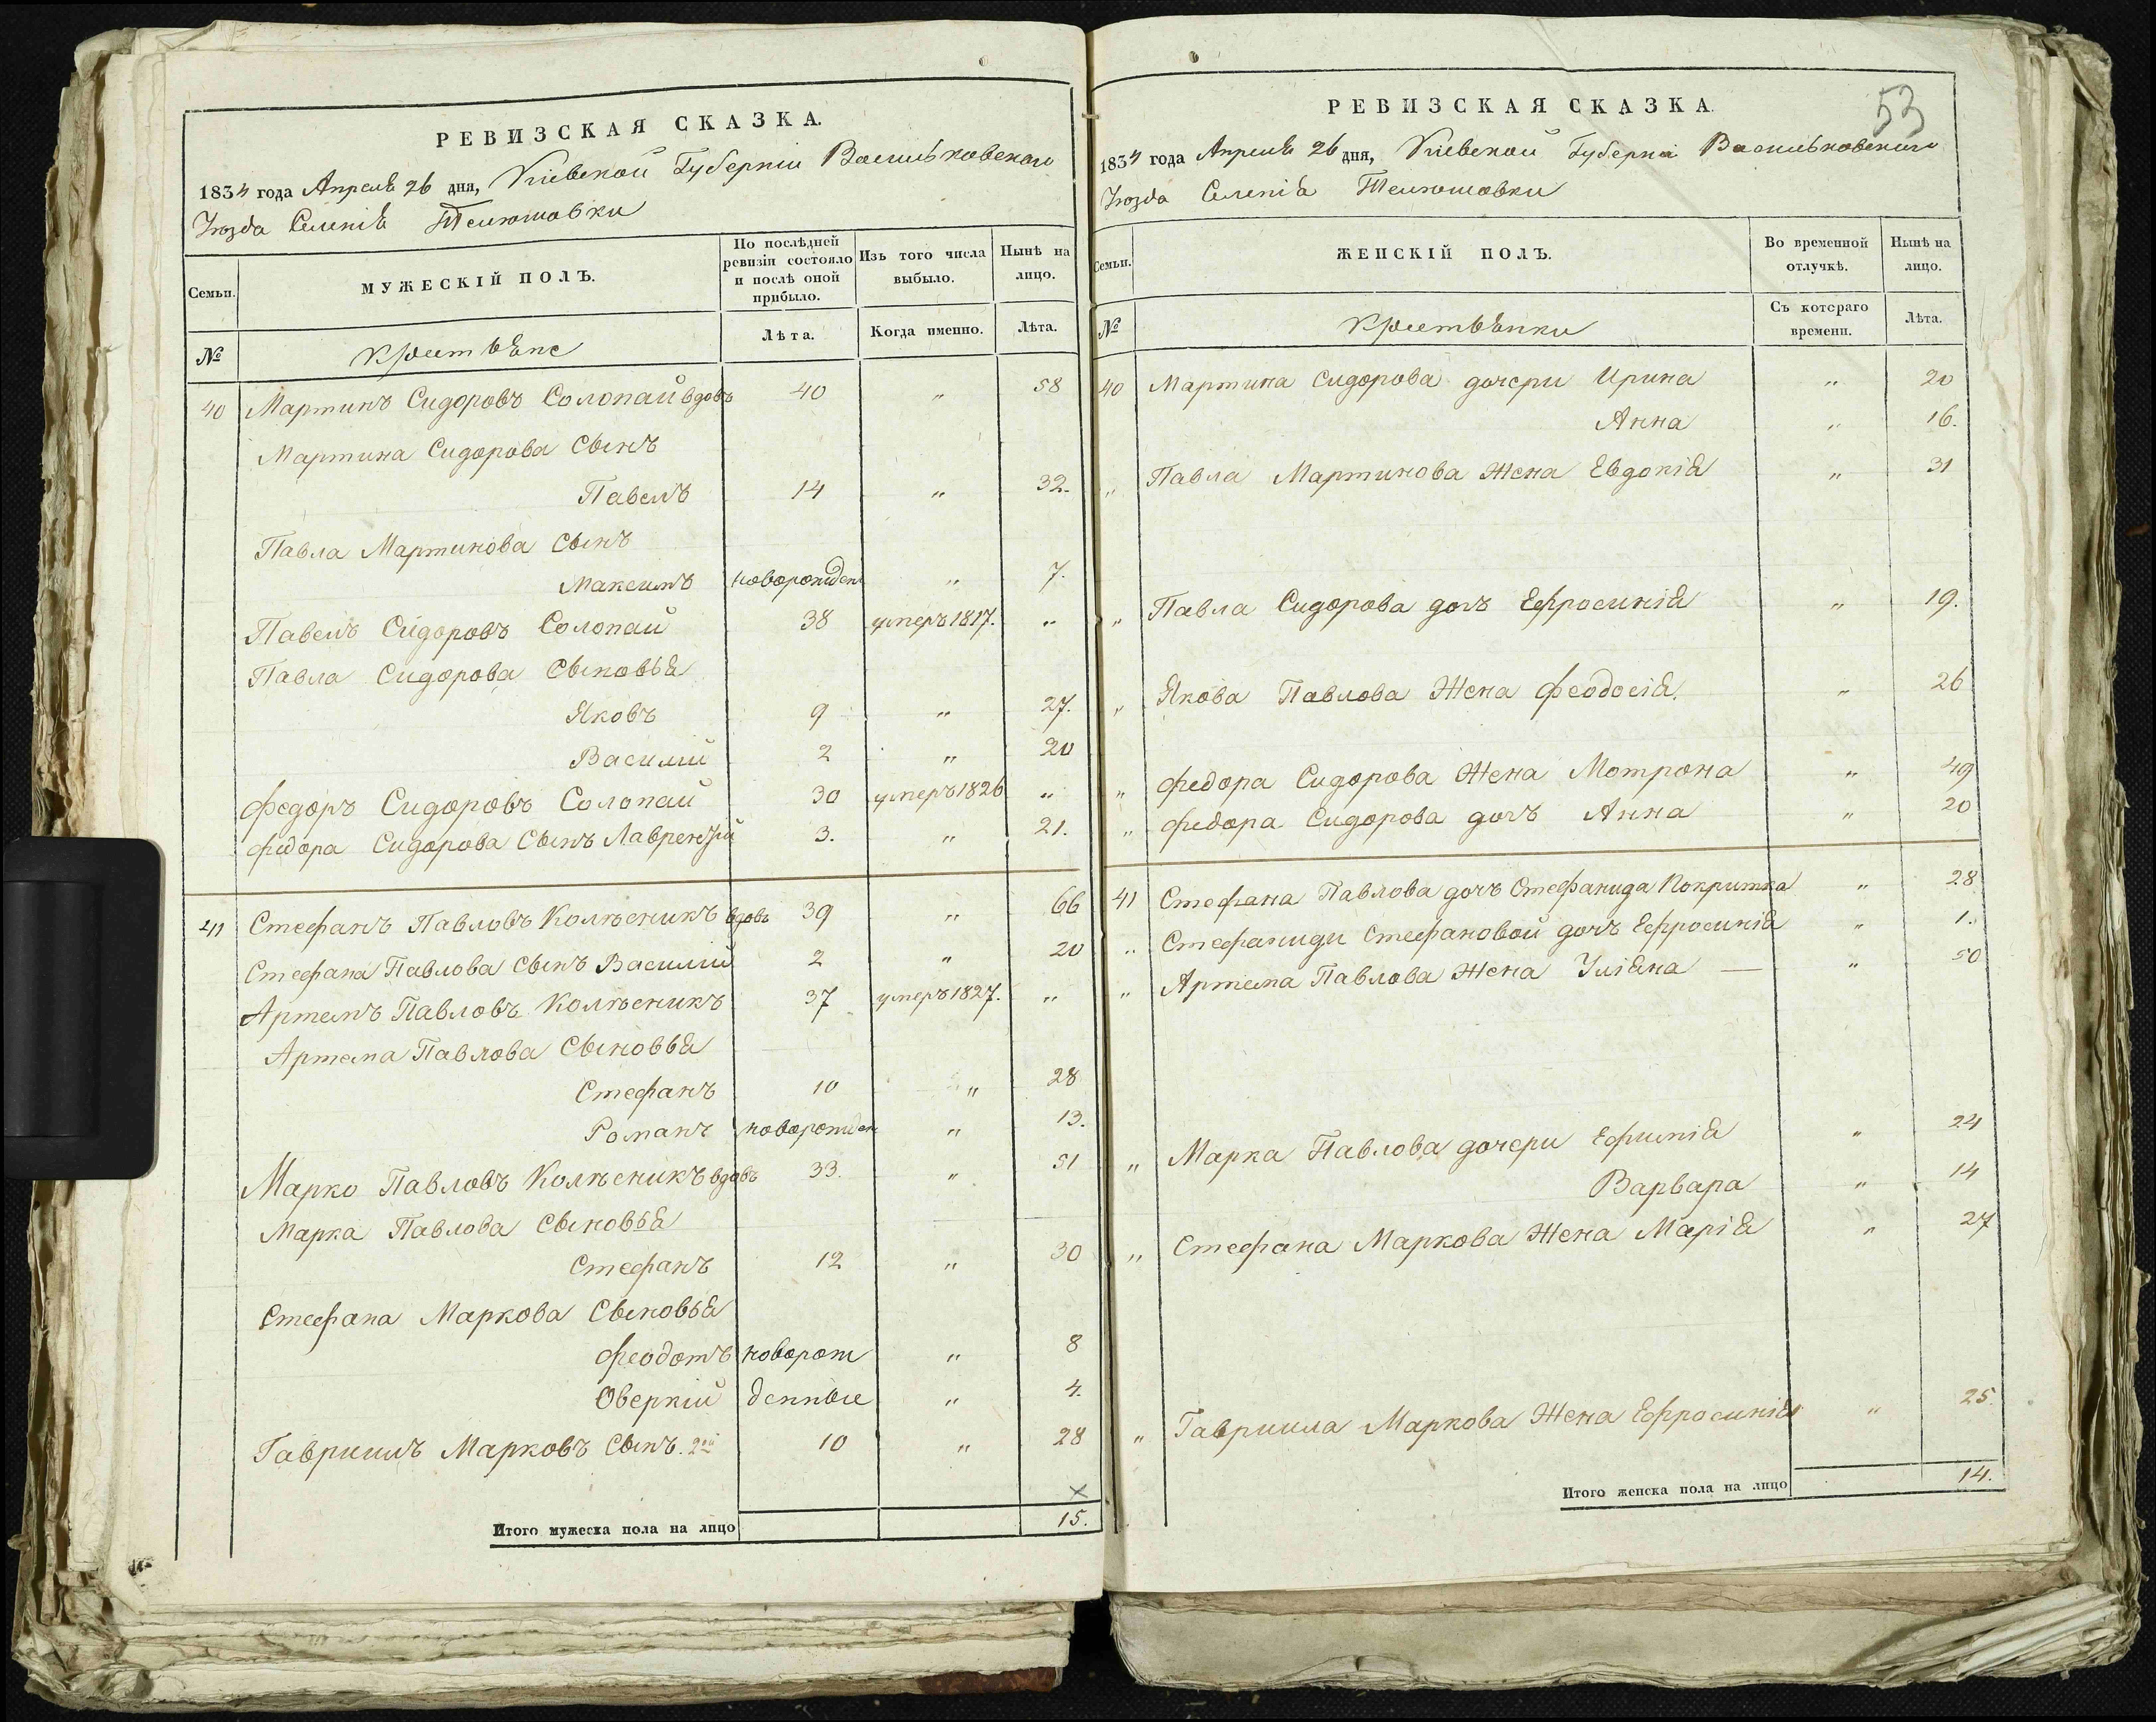 РЕВИЗСКАЯ СКАЗКА.
1834 года Апреля 26 дня, Кіевской Губерніи Васильковскаго
Уѣзда Селенія Телюшовки
Семьи.
МУЖЕСКІЙ ПОЛЪ.
По послѣдней ревизіи состояло и послѣ оной прибыло.
Изъ того числа выбыло.
Нынѣ на лицо.
№
Крестьяне
Лѣта.
Когда именно.
Лѣта.
40 Мартинъ Сидоровъ Солопай вдовъ 40 " 58
Мартина Сидорова Сынъ
Павелъ 14 " 32.
Павла Мартинова Сынъ
Максимъ новорожден " 7.
Павелъ Сидоровъ Солопай 38 умеръ 1817. "
Павла Сидорова Сыновья
Яковъ 9 " 27.
Василий 2 " 20
Федоръ Сидоровъ Солопай 30 умеръ 1826 "
Федора Сидорова Сынъ Лаврентій 3. " 21.
41 Стефанъ Павловъ Колѣсникъ вдовъ 39 " 66
Стефана Павлова Сынъ Василий 2 " 20
Артемъ Павловъ Колѣсникъ 37 умеръ 1827. "
Артема Павлова Сыновья
Стефанъ 10 " 28
Романъ новорожден " 13.
Марко Павловъ Колѣсникъ вдовъ 33. " 51
Марка Павлова Сыновья
Стефанъ 12 " 30
Стефана Маркова Сыновья
Феодотъ новорож " 8
Оверкій денные " 4.
Гавриилъ Марковъ Сынъ 2й 10 " 28
×
Итого мужеска пола на лицо 15.
53
РЕВИЗСКАЯ СКАЗКА.
1834 года Апреля 26 дня, Кіевской Губерніи Васильковскаго
Уѣзда Селенія Телюшовки
Семьи.
ЖЕНСКІЙ ПОЛЪ.
Во временной отлучкѣ.
Нынѣ на лицо.
№
Крестьянки
Съ котораго времени.
Лѣта.
40 Мартина Сидорова дочери Ирина " 20
Анна " 16.
" Павла Мартинова Жена Евдокія " 31
" Павла Сидорова дочъ Ефросинія " 19.
" Якова Павлова Жена Феодосія. " 26
" Федора Сидорова Жена Мотрона " 49
" Федора Сидорова дочъ Анна " 20
41 Стефана Павлова дочъ Стефанида Покритка " 28
" Стефаниди Стефановой дочъ Ефросинія " 1.
" Артема Павлова Жена Уліяна — " 50
" Марка Павлова дочери Ефимія " 24
Варвара " 14
" Стефана Маркова Жена Марія " 27
" Гавриила Маркова Жена Ефросинія " 25.
Итого женска пола на лицо 14.